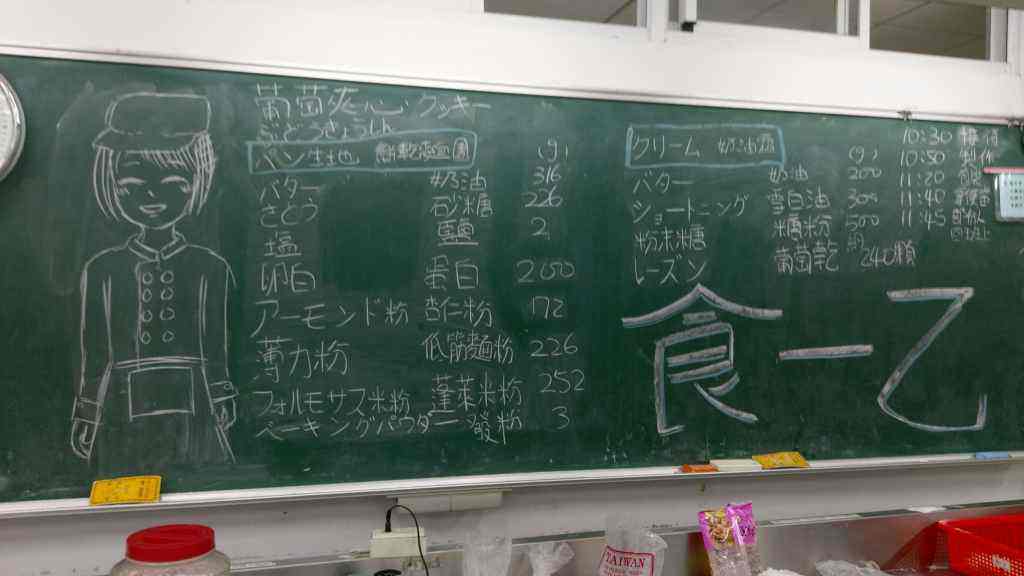 葡萄夾心クッキー
ぶどうきょうしん
パン生地 餅乾麵團 (g)
バター 奶油 316
さとう 砂糖 226
塩 鹽 2
卵白 蛋白 200
アーモンド粉 杏仁粉 172
薄力粉 低筋麵粉 226
フォルモサス米粉 蓬萊米粉 252
ベーキングパウダー 發粉 3
クリーム 奶油霜 (g)
バター 奶油 200
ショートニング 雪白油 300
粉末糖 糖粉 500
レーズン 葡萄乾 240顆
10:30
10:50 製作
11:20
11:40
11:45
食一乙
TAIWAN